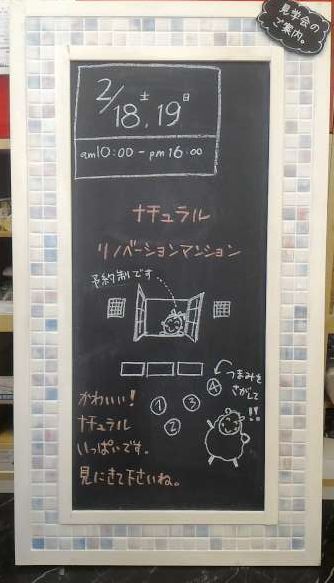 見学会の
ご案内。
2/18土.19日
am10:00-pm16:00
ナチュラル
リノベーションマンション
予約制です
つまみを
さがして
!!
① ② ③ ④
かわいい!
ナチュラル
いっぱいです。
見にきて下さいね。